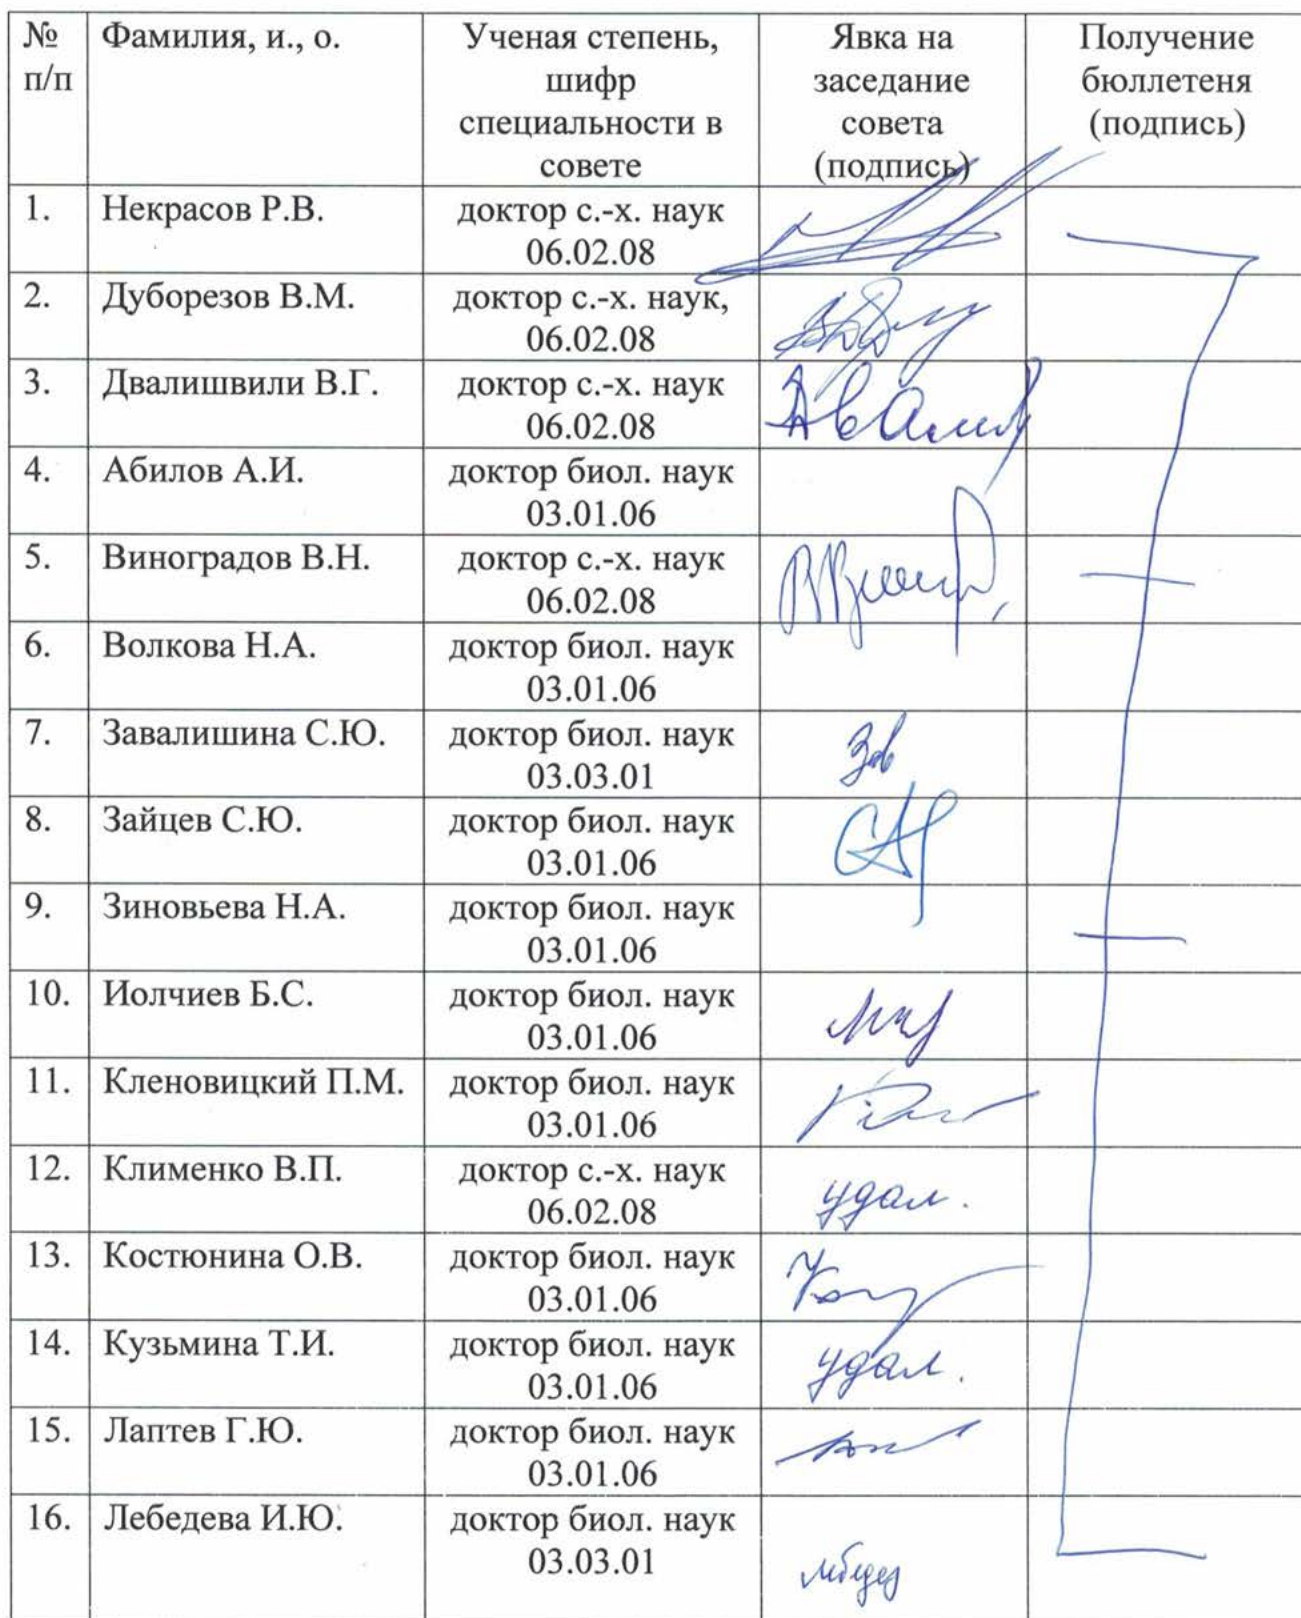 № п/п
Фамилия, и., о.
Ученая степень,
шифр
специальности в
совете
Явка на
заседание
совета
(подпись)
Получение
бюллетеня
(подпись)
1. Некрасов Р.В. доктор с.-х. наук
06.02.08
2. Дуборезов В.М. доктор с.-х. наук,
06.02.08
3. Двалишвили В.Г. доктор с.-х. наук
06.02.08
4. Абилов А.И. доктор биол. наук
03.01.06
5. Виноградов В.Н. доктор с.-х. наук
06.02.08
6. Волкова Н.А. доктор биол. наук
03.01.06
7. Завалишина С.Ю. доктор биол. наук
03.03.01
8. Зайцев С.Ю. доктор биол. наук
03.01.06
9. Зиновьева Н.А. доктор биол. наук
03.01.06
10. Иолчиев Б.С. доктор биол. наук
03.01.06
11. Кленовицкий П.М. доктор биол. наук
03.01.06
12. Клименко В.П. доктор с.-х. наук
06.02.08 удал.
13. Костюнина О.В. доктор биол. наук
03.01.06
14. Кузьмина Т.И. доктор биол. наук
03.01.06 удал.
15. Лаптев Г.Ю. доктор биол. наук
03.01.06
16. Лебедева И.Ю. доктор биол. наук
03.03.01